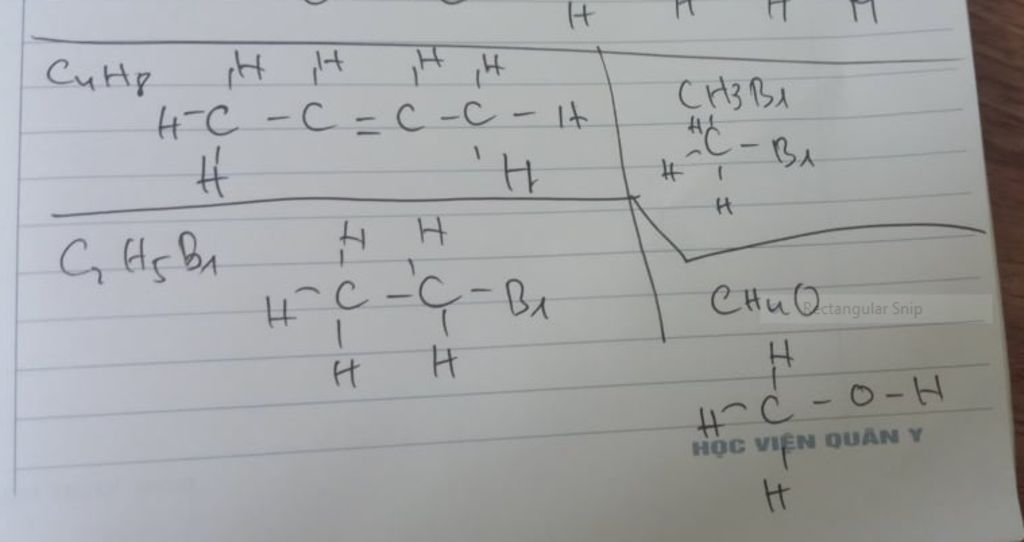 H H H H
C4H8 H H H H
H - C - C = C - C - H
H H
CH3Br
H
H - C - Br
H
C2H5Br H H
H - C - C - Br
H H
CH4O
Rectangular Snip
H
H - C - O - H
HỌC VIỆN QUÂN Y
H